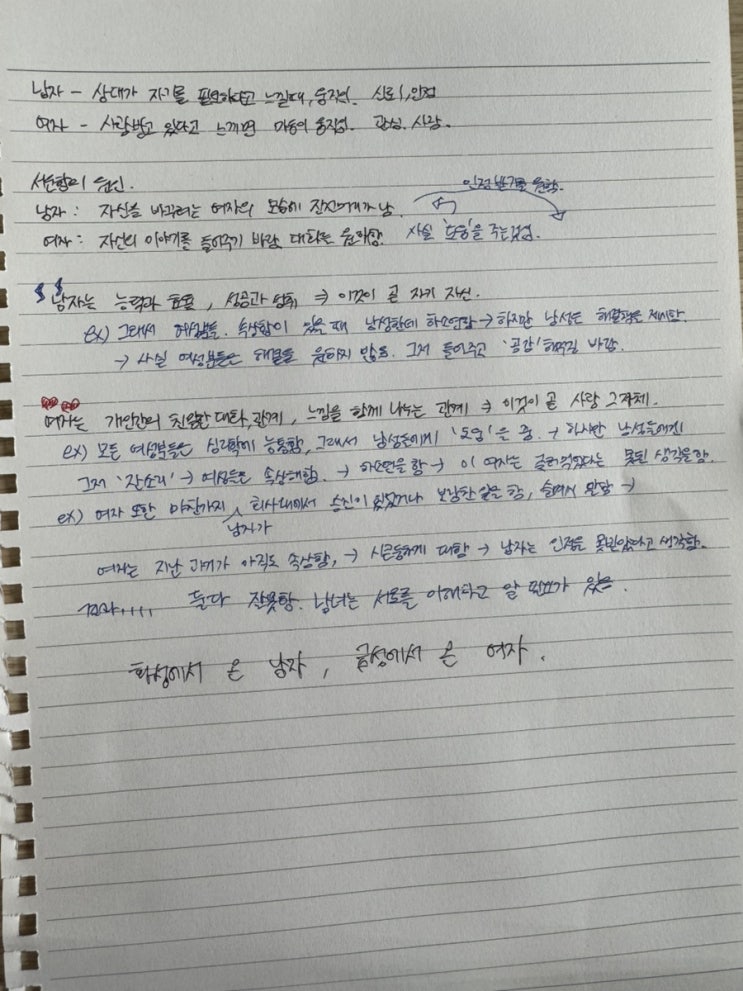 남자 - 상대가 자기를 필요하다고 느낄때, 움직임. 신뢰, 인정
여자 - 사랑받고 있다고 느끼면 마음이 움직임. 관심. 사랑.
서운함의 원인.
인정받기를 원함.
남자 : 자신을 바꾸려는 여자의 모습에 진진머리가 남.
여자 : 자신의 이야기를 들어주기 바람, 대화를 원하함. 사실 '도움'을 주는것임.
$ $ 남자는 능력과 효율, 성공과 성취 ⇒ 이것이 곧 자키 자신.
ex) 그래서 여성분들. 속상함이 있을 때 남성한테 하소연함 → 하지만 남성은 해결책을 제시함.
→ 사실 여성분들은 해결을 원하지 않음. 그저 들어주고 '공감' 해주길 바람.
여자는 개인간의 친밀한 대화, 관계, 느낌을 함께 나누는 관계 ⇒ 이것이 곧 사랑 그자체.
ex) 모든 여성부들은 심리학에 능통함, 그래서 남성들에게 '도움'을 줌. → 하지만 남성들에겐
그저 '잔소리' → 여성들은 속상해함. → 하소연을 함 → 이 여자는 글러먹었다는 못된 생각을 함.
ex) 여자 또한 마찬가지 남자가 회사내에서 승진이 있었거나 보람찬 일을 함, 술에서 말함 →
여자는 지난 과거가 아직도 속상함, → 시큰둥하게 대함 → 남자는 인정을 못받았다고 생각함.
결과, , , , 둘다 잘못함. 남녀는 서로를 이해하고 알 필요가 있음.
화성에서 온 남자, 금성에서 온 여자.